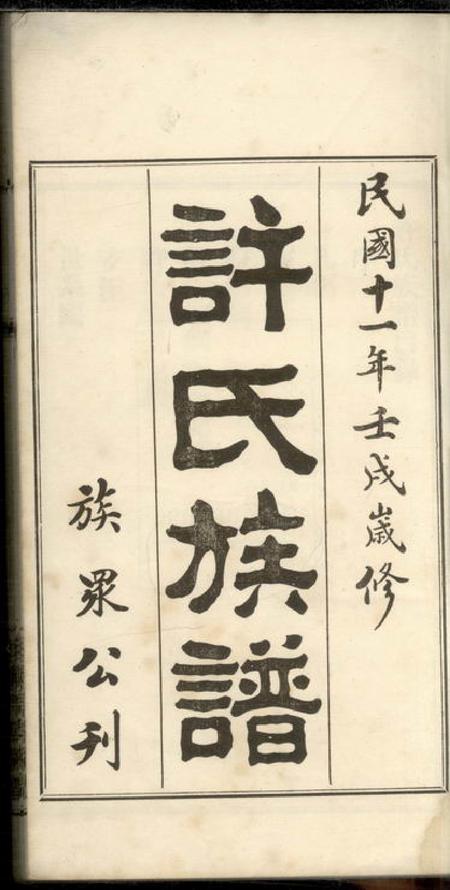 民國十一年壬戌歲修
許氏族譜
族眾公刊